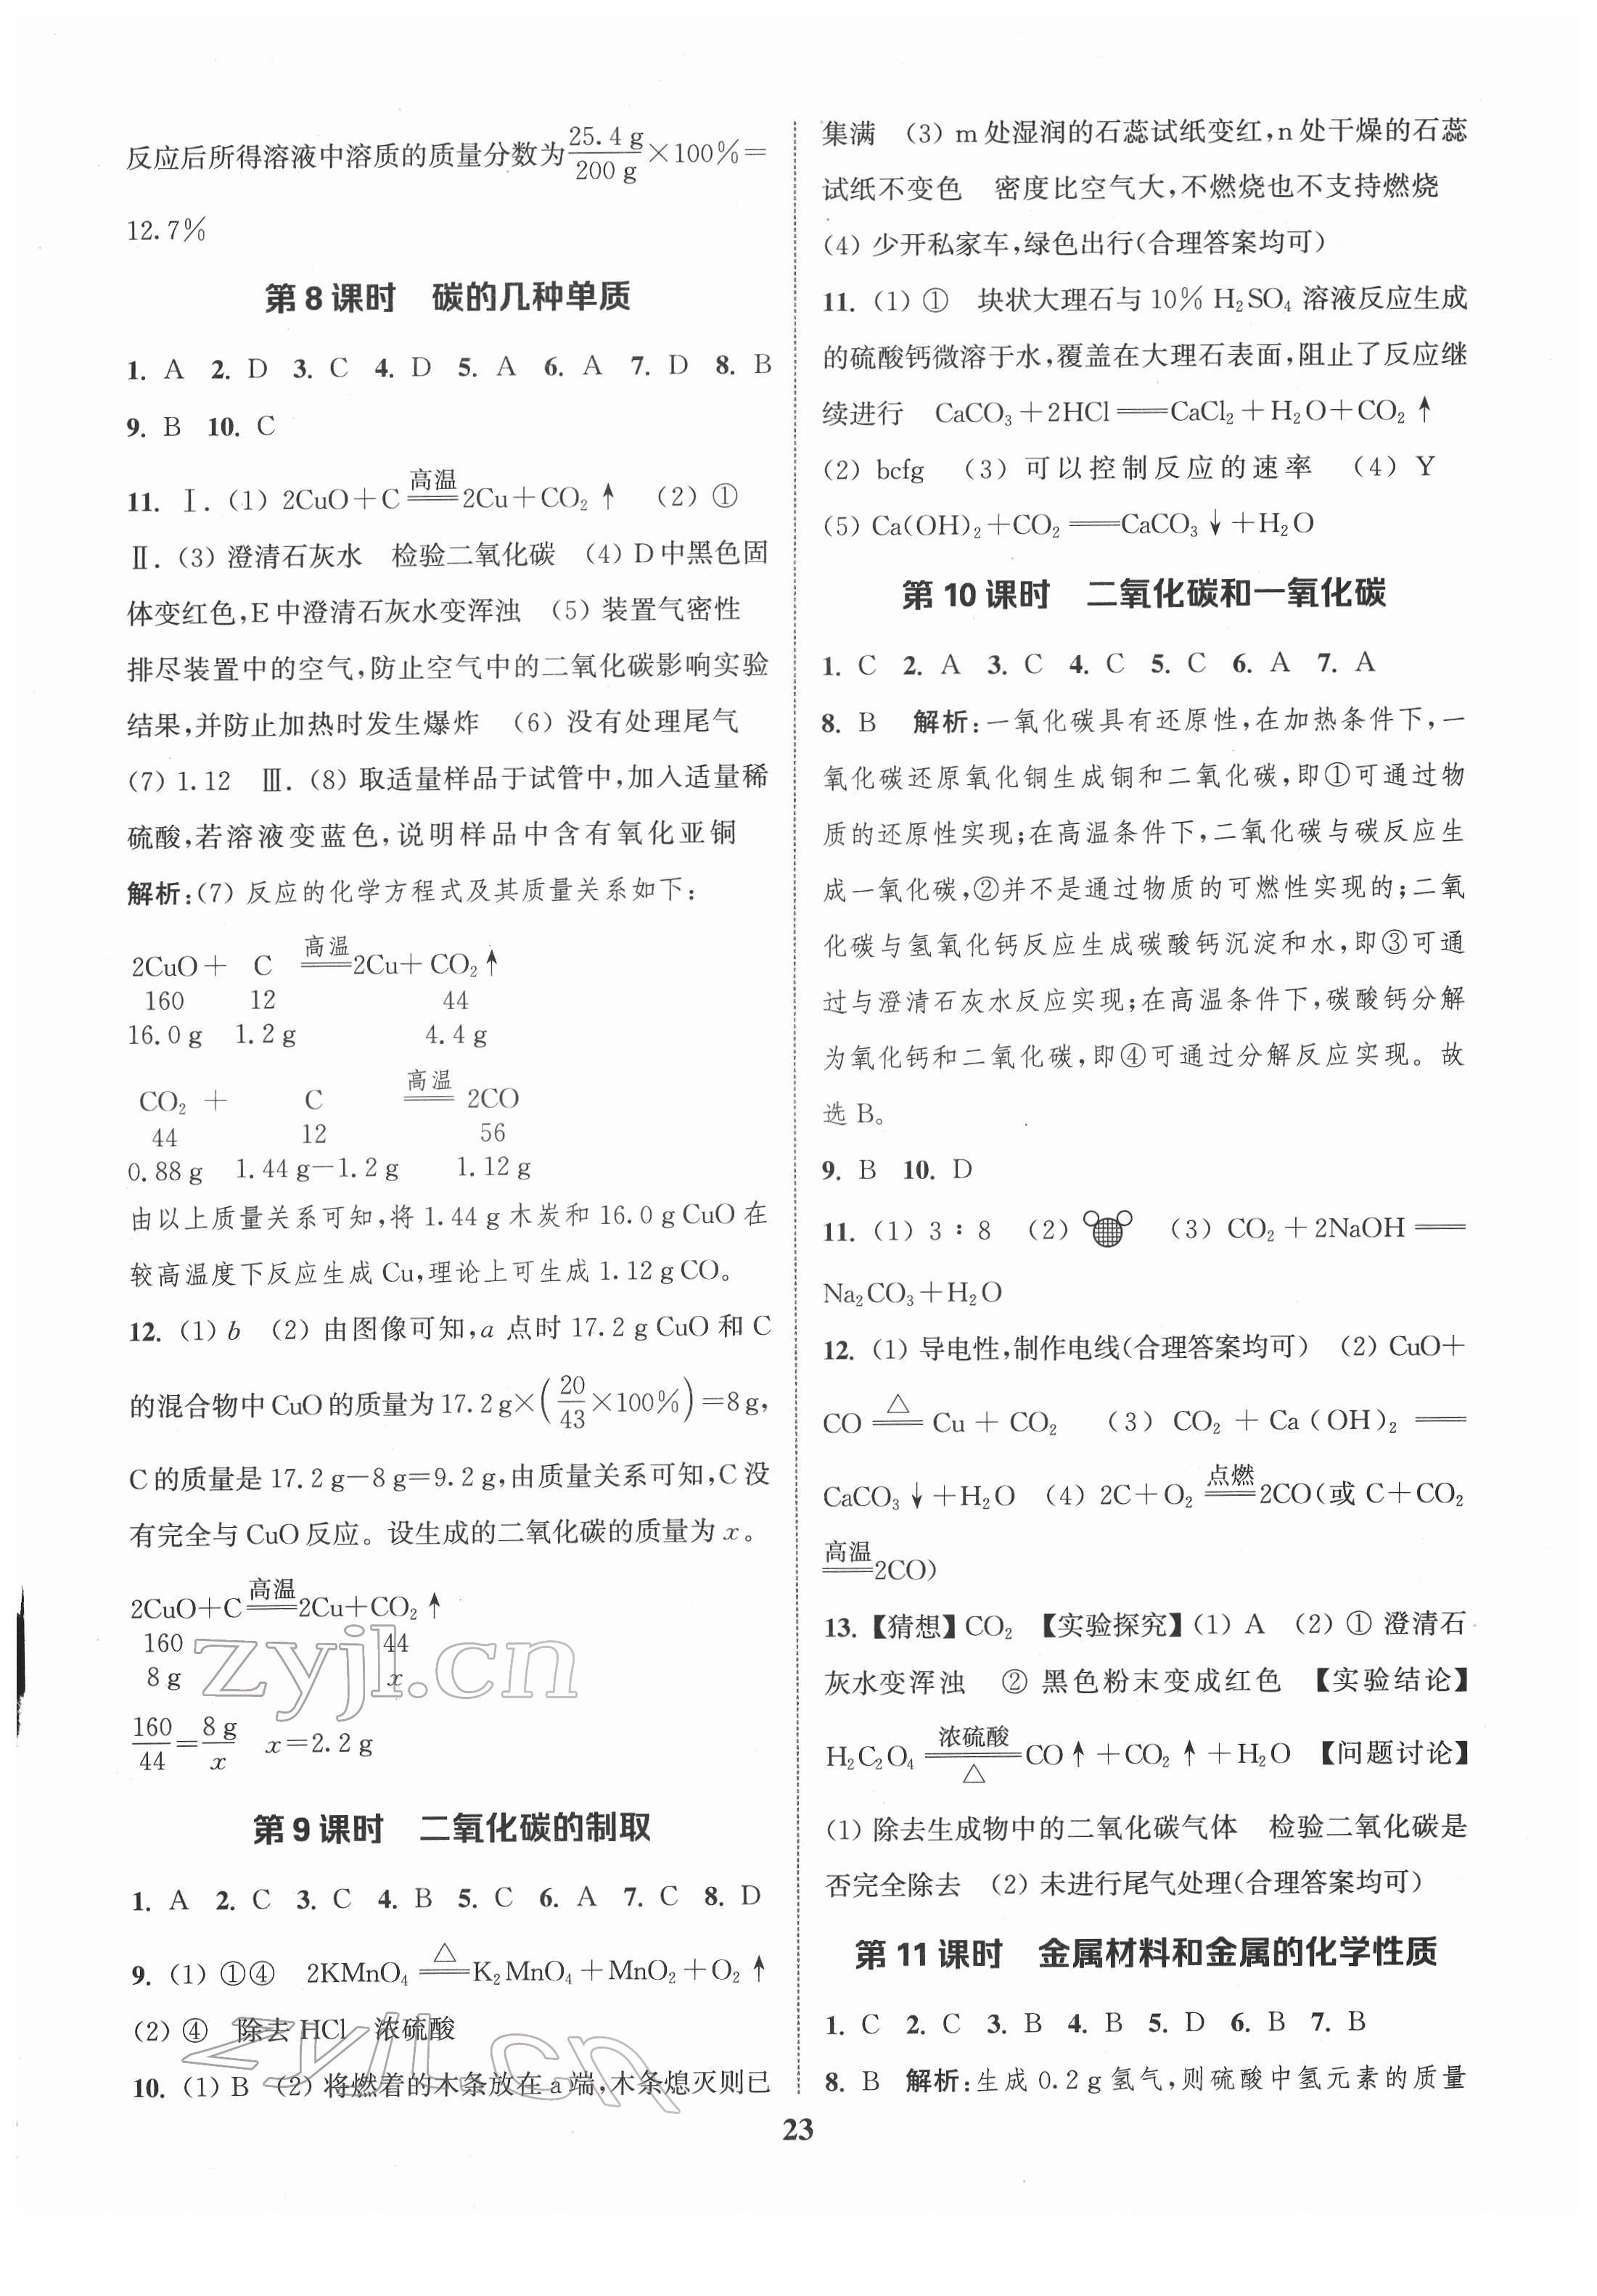 反应后所得溶液中溶质的质量分数为25.4 g/200 g×100%=
12.7%
第 8 课时　碳的几种单质
1. A 2. D 3. C 4. D 5. A 6. A 7. D 8. B
9. B 10. C
11. Ⅰ. (1) 2CuO+C 高温═══ 2Cu+CO₂↑ (2) ①
Ⅱ. (3) 澄清石灰水　检验二氧化碳 (4) D 中黑色固
体变红色,E 中澄清石灰水变浑浊 (5) 装置气密性
排尽装置中的空气,防止空气中的二氧化碳影响实验
结果,并防止加热时发生爆炸 (6) 没有处理尾气
(7) 1.12 Ⅲ. (8) 取适量样品于试管中,加入适量稀
硫酸,若溶液变蓝色,说明样品中含有氧化亚铜
解析:(7) 反应的化学方程式及其质量关系如下:
2CuO+ C 高温═══ 2Cu+ CO₂↑
160 12 44
16.0 g 1.2 g 4.4 g
CO₂ + C 高温═══ 2CO
44 12 56
0.88 g 1.44 g−1.2 g 1.12 g
由以上质量关系可知,将 1.44 g 木炭和 16.0 g CuO 在
较高温度下反应生成 Cu,理论上可生成 1.12 g CO。
12. (1) b (2) 由图像可知,a 点时 17.2 g CuO 和 C
的混合物中 CuO 的质量为 17.2 g×(20/43×100%)=8 g,
C 的质量是 17.2 g−8 g=9.2 g,由质量关系可知,C 没
有完全与 CuO 反应。设生成的二氧化碳的质量为 x。
2CuO+C 高温═══ 2Cu+CO₂↑
160 44
8 g x
160/44=8 g/x x=2.2 g
第 9 课时　二氧化碳的制取
1. A 2. C 3. C 4. B 5. C 6. A 7. C 8. D
9. (1) ①④ 2KMnO₄ △═══ K₂MnO₄+MnO₂+O₂↑
(2) ④ 除去 HCl 浓硫酸
10. (1) B (2) 将燃着的木条放在 a 端,木条熄灭则已
集满 (3) m 处湿润的石蕊试纸变红,n 处干燥的石蕊
试纸不变色　密度比空气大,不燃烧也不支持燃烧
(4) 少开私家车,绿色出行(合理答案均可)
11. (1) ① 块状大理石与 10% H₂SO₄ 溶液反应生成
的硫酸钙微溶于水,覆盖在大理石表面,阻止了反应继
续进行 CaCO₃+2HCl═══CaCl₂+H₂O+CO₂↑
(2) bcfg (3) 可以控制反应的速率 (4) Y
(5) Ca(OH)₂+CO₂═══CaCO₃↓+H₂O
第 10 课时　二氧化碳和一氧化碳
1. C 2. A 3. C 4. C 5. C 6. A 7. A
8. B 解析:一氧化碳具有还原性,在加热条件下,一
氧化碳还原氧化铜生成铜和二氧化碳,即①可通过物
质的还原性实现;在高温条件下,二氧化碳与碳反应生
成一氧化碳,②并不是通过物质的可燃性实现的;二氧
化碳与氢氧化钙反应生成碳酸钙沉淀和水,即③可通
过与澄清石灰水反应实现;在高温条件下,碳酸钙分解
为氧化钙和二氧化碳,即④可通过分解反应实现。故
选 B。
9. B 10. D
11. (1) 3∶8 (2) (3) CO₂+2NaOH═══
Na₂CO₃+H₂O
12. (1) 导电性,制作电线(合理答案均可) (2) CuO+
CO △═══ Cu+CO₂ (3) CO₂+Ca(OH)₂═══
CaCO₃↓+H₂O (4) 2C+O₂ 点燃═══ 2CO(或 C+CO₂
高温═══ 2CO)
13.【猜想】CO₂ 【实验探究】(1) A (2) ① 澄清石
灰水变浑浊 ② 黑色粉末变成红色 【实验结论】
H₂C₂O₄ 浓硫酸═══△ CO↑+CO₂↑+H₂O 【问题讨论】
(1) 除去生成物中的二氧化碳气体　检验二氧化碳是
否完全除去 (2) 未进行尾气处理(合理答案均可)
第 11 课时　金属材料和金属的化学性质
1. C 2. C 3. B 4. B 5. D 6. B 7. B
8. B 解析:生成 0.2 g 氢气,则硫酸中氢元素的质量
23
zyjl.cn
zyjl.cn